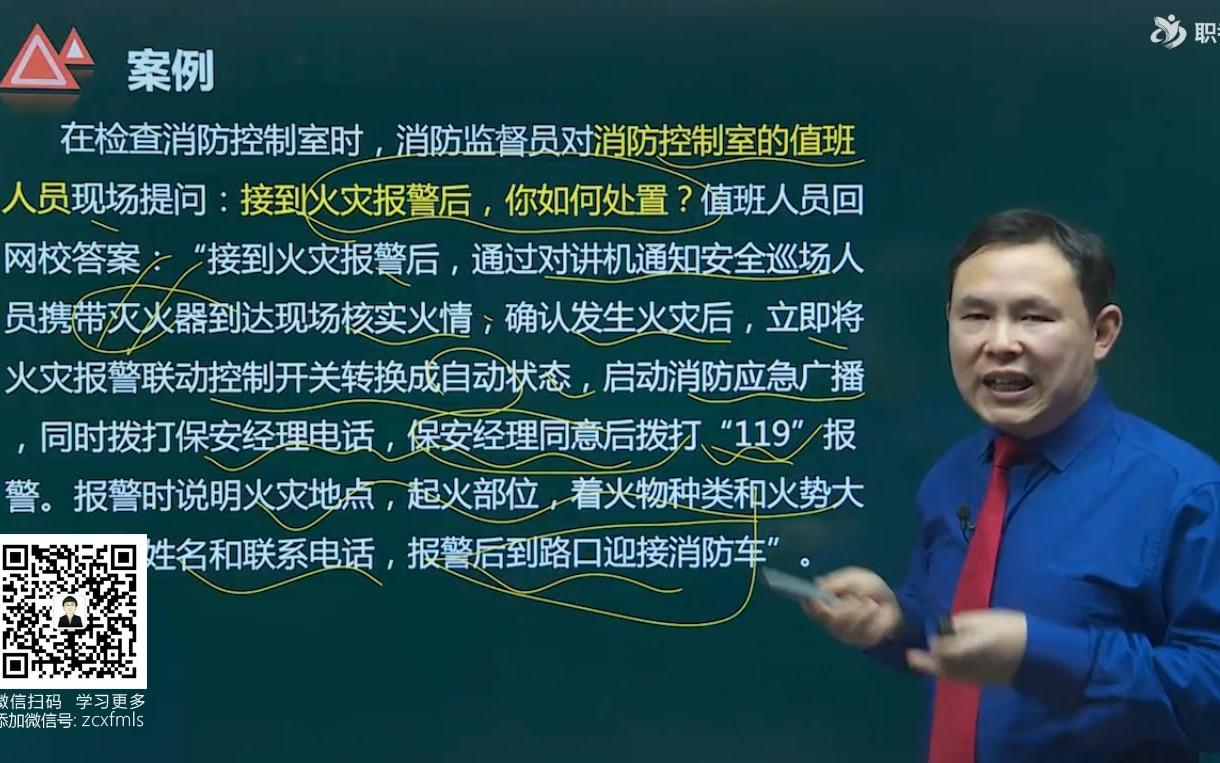 职考
案例
在检查消防控制室时，消防监督员对消防控制室的值班
人员现场提问：接到火灾报警后，你如何处置？值班人员回
网校答案：“接到火灾报警后，通过对讲机通知安全巡场人
员携带灭火器到达现场核实火情；确认发生火灾后，立即将
火灾报警联动控制开关转换成自动状态，启动消防应急广播
，同时拨打保安经理电话，保安经理同意后拨打“119”报
警。报警时说明火灾地点，起火部位，着火物种类和火势大
姓名和联系电话，报警后到路口迎接消防车”。
微信扫码 学习更多
添加微信号: zcxfmls